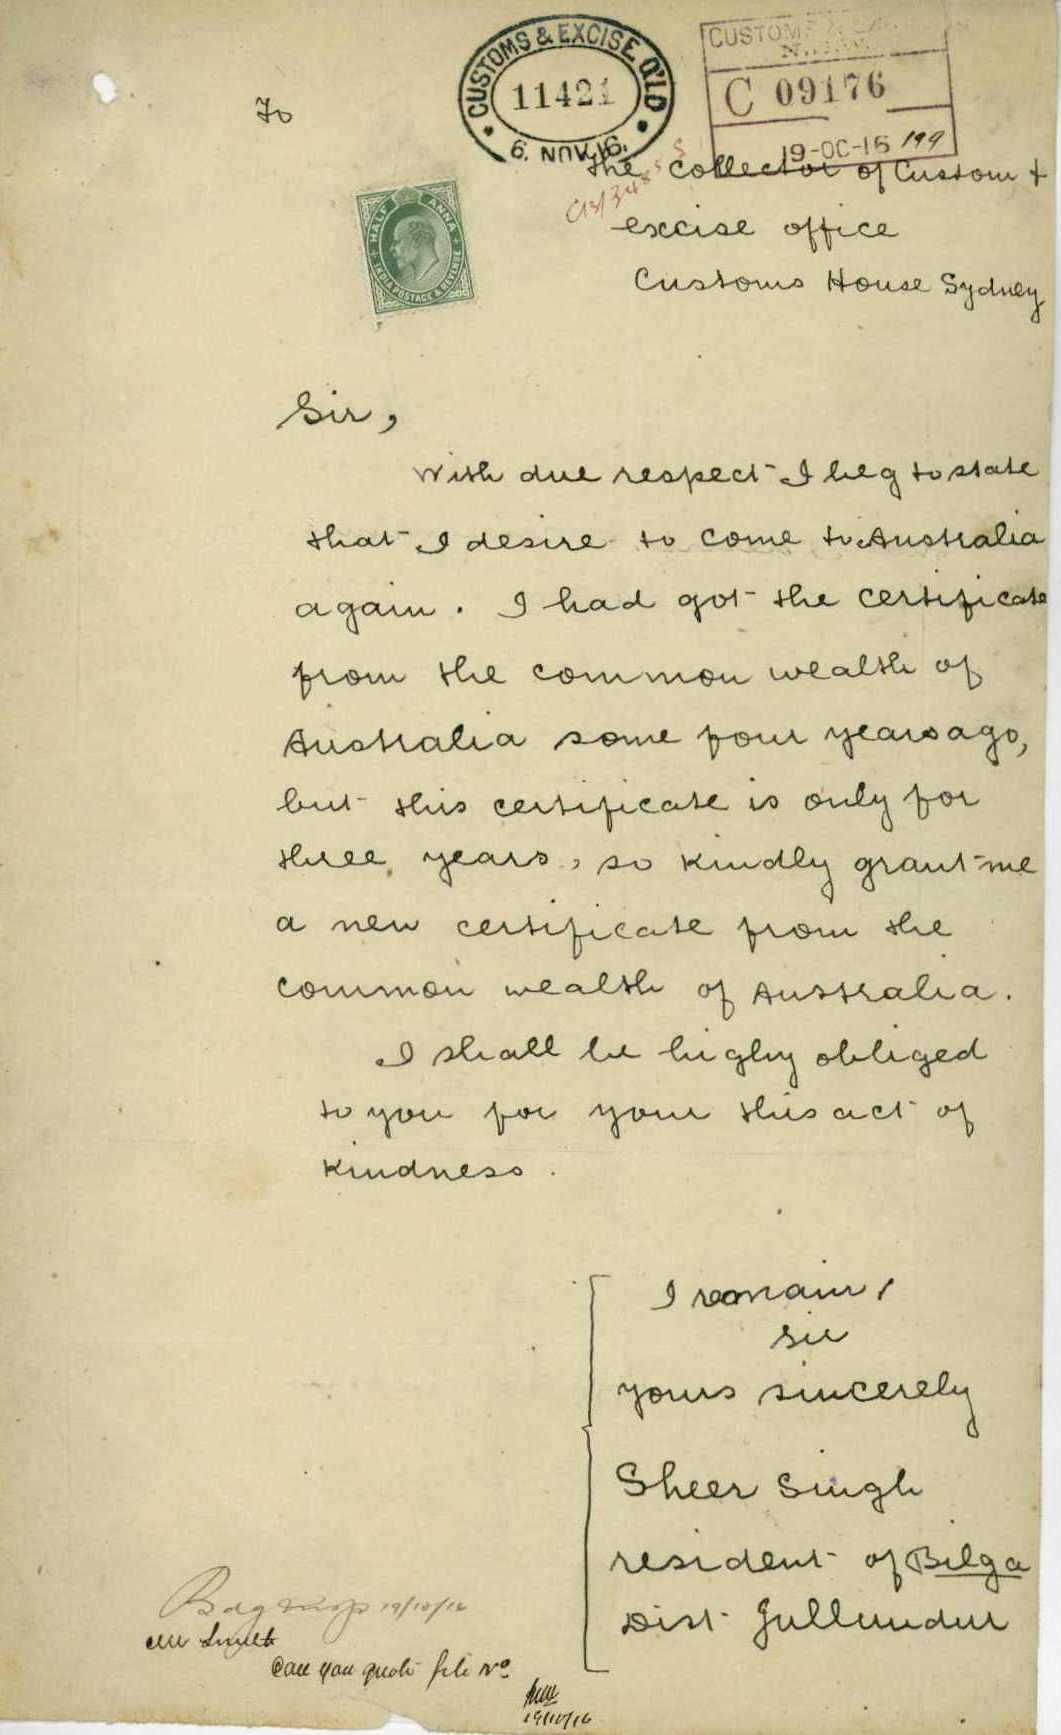 CUSTOMS & EXCISE Q'LD
11421
9. NOV. 16
CUSTOMS
C 09176
19-OC-16 199
To
The Collector of Custom &
excise office
Customs House Sydney
HALF ANNA
INDIA POSTAGE & REVENUE
Sir,
With due respect I beg to state
that I desire to come to Australia
again. I had got the certificate
from the common wealth of
Australia some four years ago,
but this certificate is only for
three years, so kindly grant me
a new certificate from the
common wealth of Australia.
I shall be highy obliged
to you for your this act of
kindness.
I remain,
sir
yours sincerely
Sheer Singh
resident of Bilga
Dist Jullundur
19/10/16
Mr Smith
Can you quote file No
19/10/16